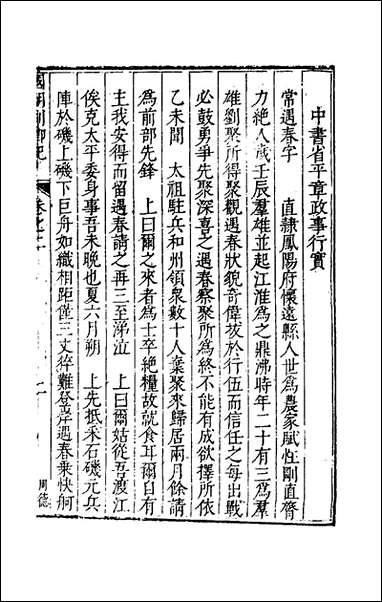 中書省平章政事行實
常遇春字　直隸鳳陽府懷遠縣人世爲農家賦性剛直膂
力絶人歲壬辰羣雄並起江淮爲之鼎沸時年二十有三爲羣
雄劉聚所得聚觀遇春狀貌奇偉拔於行伍而信任之每出戰
必鼓勇爭先聚深喜之遇春察聚所爲終不能有成欲擇所依
乙未聞　太祖駐兵和州領衆數十人棄聚來歸居兩月餘請
爲前部先鋒　上曰爾之來者爲士卒絶糧故就食耳爾自有
主我安得而留遇春請之再三至涕泣　上曰爾姑從吾渡江
俟克太平委身事吾未晚也夏六月朔　上先抵采石磯元兵
陣於磯上磯下巨舟如織相距僅三丈猝難登岸遇春乘快舸
周德